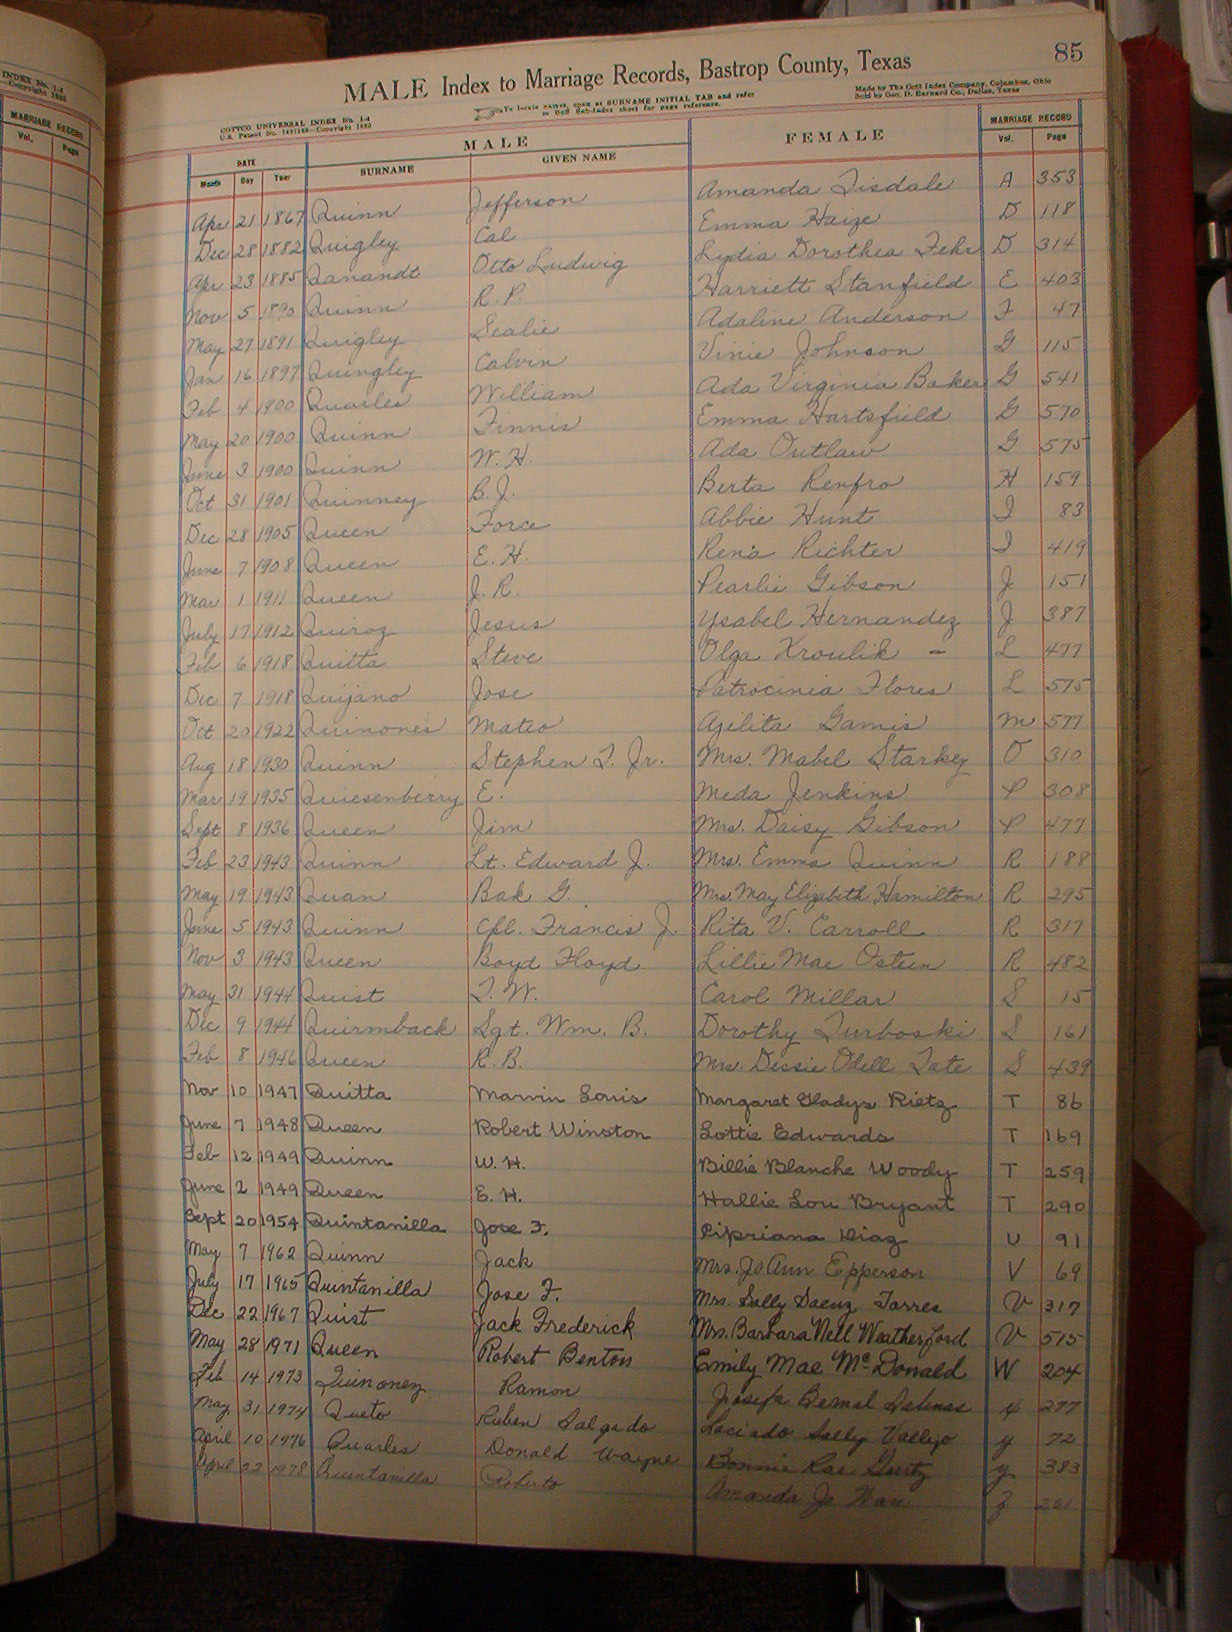 INDEX No. 1-4
—Copyright 1880
MARRIAGE RECORD
Vol. Page
85
MALE Index to Marriage Records, Bastrop County, Texas
COTTCO UNIVERSAL INDEX No. 1-4
U.S. Patent No. 1457169—Copyright 1880
To locate names, open at SURNAME INITIAL TAB and refer
to Buff Sub-Index sheet for page reference.
Made by The Cott Index Company, Columbus, Ohio
Sold by Geo. D. Barnard Co., Dallas, Texas
DATE MALE FEMALE MARRIAGE RECORD
Month Day Year SURNAME GIVEN NAME Vol. Page
Apr 21 1867 Quinn Jefferson Amanda Tisdale A 353
Dec 28 1882 Quigley Cal Emma Haize D 118
Apr 23 1885 Qanandt Otto Ludwig Lydia Dorothea Fehr D 314
Nov 5 1890 Quinn R. P. Harriett Stanfield E 403
May 27 1891 Quigley Sealie Adaline Anderson F 47
Jan 16 1897 Quingley Calvin Vinie Johnson G 115
Feb 4 1900 Quarles William Ada Virginia Baker G 541
May 20 1900 Quinn Finnis Emma Hartsfield G 570
June 3 1900 Quinn W. H. Ada Outlaw G 575
Oct 31 1901 Quinney B. J. Berta Renfro H 159
Dec 28 1905 Queen Force Abbie Hunt I 83
June 7 1908 Queen E. H. Rena Richter I 419
Mar 1 1911 Queen J. R. Pearlie Gibson J 151
July 17 1912 Quiroz Jesus Ysabel Hernandez J 387
Feb 6 1918 Quitta Steve Olga Kroulik - L 477
Dec 7 1918 Quijano Jose Patrocinia Flores L 575
Oct 20 1922 Quinones Mateo Ajelita Gamis M 577
Aug 18 1930 Quinn Stephen T. Jr. Mrs. Mabel Starkey O 310
Mar 19 1935 Quiesenberry E. Meda Jenkins P 308
Sept 8 1936 Queen Jim Mrs. Daisy Gibson P 477
Feb 23 1943 Quinn Lt. Edward J. Mrs. Emma Quinn R 188
May 19 1943 Quan Bak G. Mrs. May Elizabeth Hamilton R 295
June 5 1943 Quinn Cpl. Francis J. Rita V. Carroll R 317
Nov 3 1943 Queen Boyd Floyd Lillie Mae Osteen R 482
May 31 1944 Quist T. W. Carol Millar S 15
Dec 9 1944 Quirmback Sgt. Wm. B. Dorothy Turboski S 161
Feb 8 1946 Queen R. B. Mrs. Dessie Odell Tate S 439
Nov 10 1947 Quitta Marvin Louis Margaret Gladys Rietz T 86
June 7 1948 Queen Robert Winston Lottie Edwards T 169
Feb 12 1949 Quinn W. H. Billie Blanche Woody T 259
June 2 1949 Queen E. H. Hallie Lou Bryant T 290
Sept 20 1954 Quintanilla Jose F. Cipriana Diaz U 91
May 7 1962 Quinn Jack Mrs. Jo Ann Epperson V 69
July 17 1965 Quintanilla Jose F. Mrs. Sally Saenz Torres V 317
Dec 22 1967 Quist Jack Frederick Mrs. Barbara Nell Weatherford V 515
May 28 1971 Queen Robert Benton Emily Mae McDonald W 204
Feb 14 1973 Quinonez Ramon Josefa Bernal Salinas 277
May 31 1974 Queto Ruben Salgado Sally Vallejo y 72
April 10 1976 Quarles Donald Wayne Bonnie Rae y 383
April 22 1978 Quintanilla Roberto Amanda Jo Ware Z 261